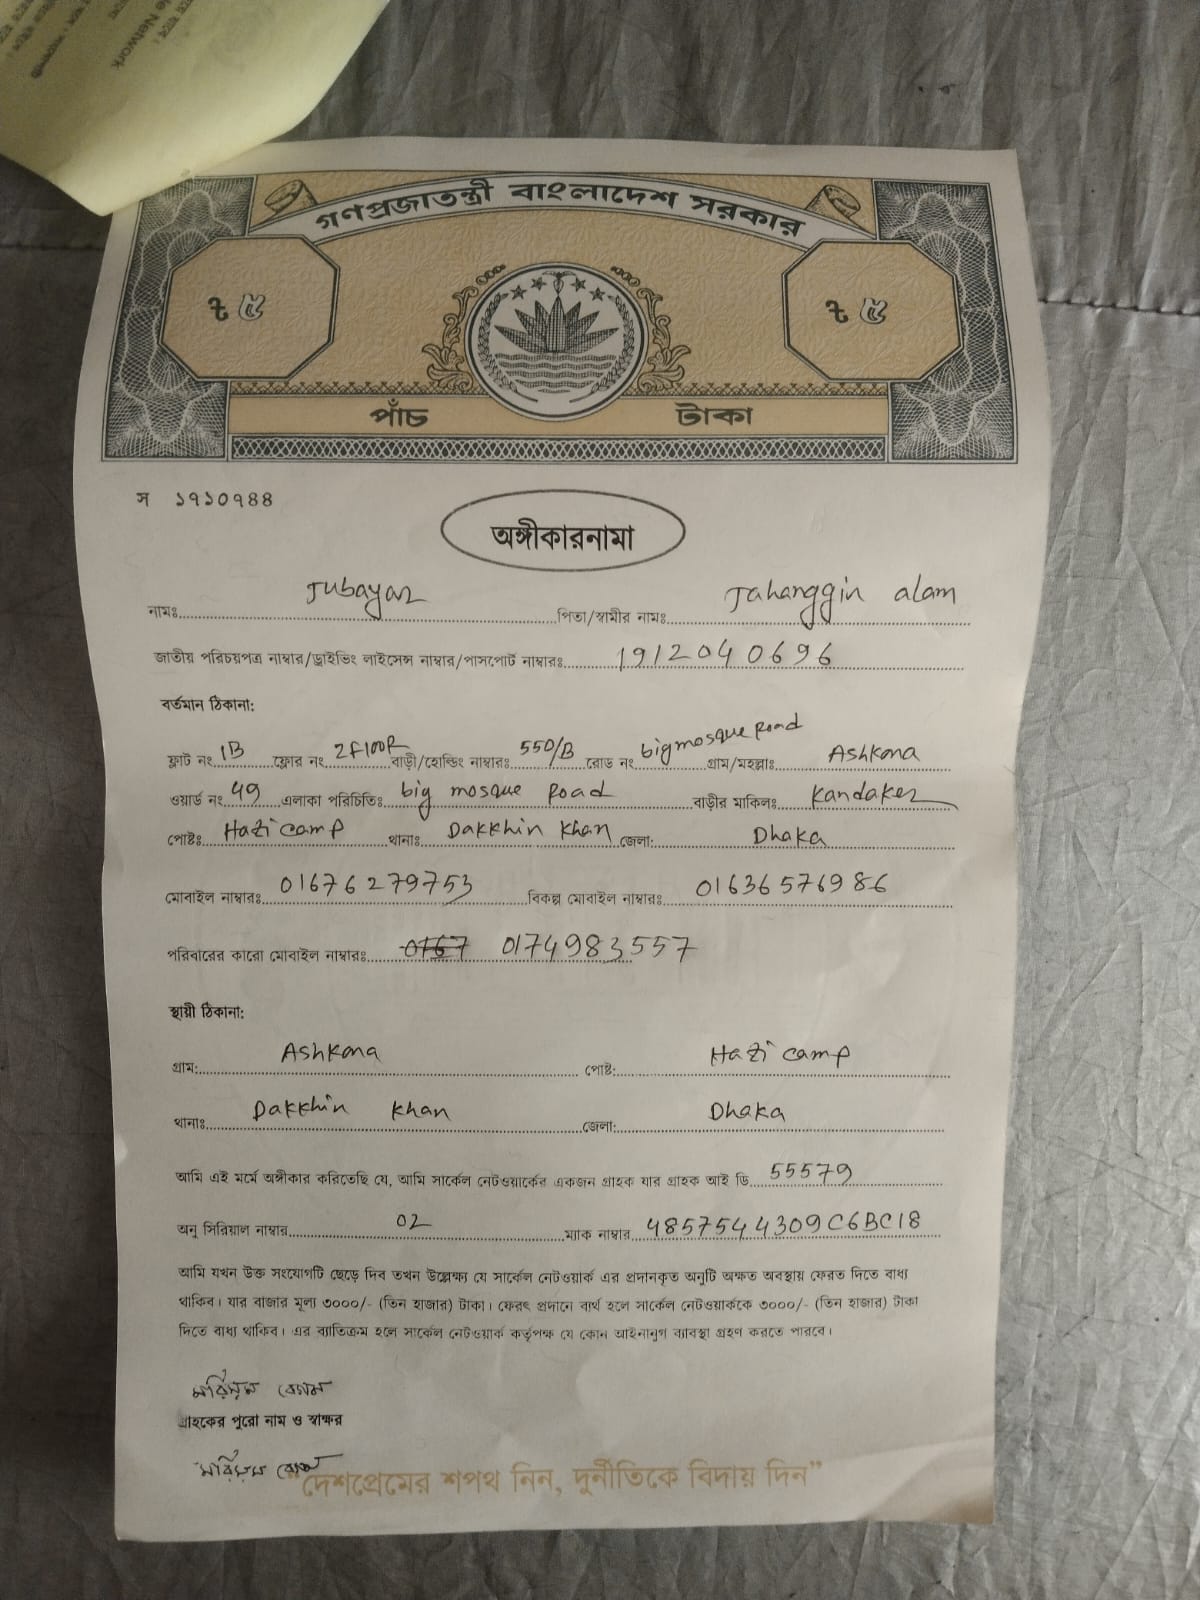 গণপ্রজাতন্ত্রী বাংলাদেশ সরকার
৳ ৫ ৳ ৫
পাঁচ টাকা
স ১৭১০৭৪৪
অঙ্গীকারনামা
নামঃ Jubayar পিতা/স্বামীর নামঃ Jahanggin alam
জাতীয় পরিচয়পত্র নাম্বার/ড্রাইভিং লাইসেন্স নাম্বার/পাসপোর্ট নাম্বারঃ 1912040696
বর্তমান ঠিকানা:
ফ্লাট নং 1B ফ্লোর নং 2Floor বাড়ী/হোল্ডিং নাম্বারঃ 550/B রোড নং big mosque Road গ্রাম/মহল্লাঃ Ashkona
ওয়ার্ড নং 49 এলাকা পরিচিতিঃ big mosque Road বাড়ীর মাকিলঃ Kandaker
পোষ্টঃ Hazi camp থানাঃ Dakkhin Khan জেলা: Dhaka
মোবাইল নাম্বারঃ 01676279753 বিকল্প মোবাইল নাম্বারঃ 01636576986
পরিবারের কারো মোবাইল নাম্বারঃ 0167 0174983557
স্থায়ী ঠিকানা:
গ্রাম: Ashkona পোষ্ট: Hazi camp
থানাঃ Dakkhin Khan জেলা: Dhaka
আমি এই মর্মে অঙ্গীকার করিতেছি যে, আমি সার্কেল নেটওয়ার্কের একজন গ্রাহক যার গ্রাহক আই ডি 55579
অনু সিরিয়াল নাম্বার 02 ম্যাক নাম্বার 4857544309C6BC18
আমি যখন উক্ত সংযোগটি ছেড়ে দিব তখন উল্লেক্ষ্য যে সার্কেল নেটওয়ার্ক এর প্রদানকৃত অনুটি অক্ষত অবস্থায় ফেরত দিতে বাধ্য
থাকিব। যার বাজার মূল্য ৩০০০/- (তিন হাজার) টাকা। ফেরৎ প্রদানে ব্যর্থ হলে সার্কেল নেটওয়ার্ককে ৩০০০/- (তিন হাজার) টাকা
দিতে বাধ্য থাকিব। এর ব্যতিক্রম হলে সার্কেল নেটওয়ার্ক কর্তৃপক্ষ যে কোন আইনানুগ ব্যাবস্থা গ্রহণ করতে পারবে।
মরিয়ম বেগম
গ্রাহকের পুরো নাম ও স্বাক্ষর
মরিয়ম বেগম
"দেশপ্রেমের শপথ নিন, দুর্নীতিকে বিদায় দিন"